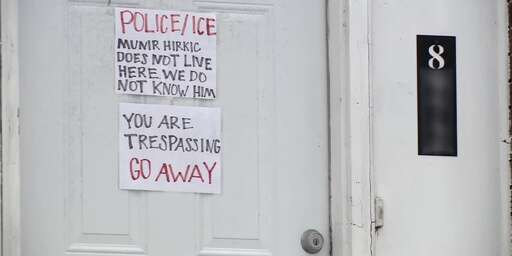 POLICE/ICE
MUNIR HIRKIC
DOES NOT LIVE
HERE WE DO
NOT KNOW HIM
YOU ARE
TRESPASSING
GO AWAY
8